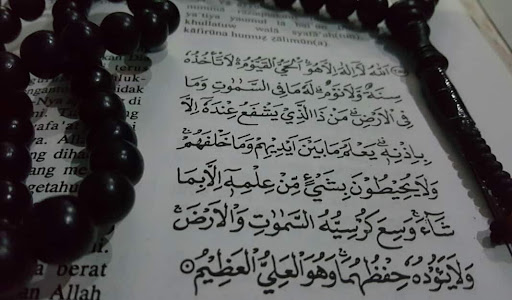 ya'tiya yaumul
khullatuw walā syafā'ah(
kāfirūna humuẓ ẓālimūn(a)
اَللّٰهُ لَآ اِلٰهَ اِلَّا هُوَ الْحَيُّ الْقَيُّوْمُ ەۚ لَا تَأْخُذُهٗ
سِنَةٌ وَّلَا نَوْمٌۗ لَهٗ مَا فِى السَّمٰوٰتِ وَمَا
فِى الْاَرْضِۗ مَنْ ذَا الَّذِيْ يَشْفَعُ عِنْدَهٗٓ اِلَّا
بِاِذْنِهٖۗ يَعْلَمُ مَا بَيْنَ اَيْدِيْهِمْ وَمَا خَلْفَهُمْۚ
وَلَا يُحِيْطُوْنَ بِشَيْءٍ مِّنْ عِلْمِهٖٓ اِلَّا بِمَا
شَاۤءَۚ وَسِعَ كُرْسِيُّهُ السَّمٰوٰتِ وَالْاَرْضَۚ
وَلَا يَـُٔوْدُهٗ حِفْظُهُمَاۚ وَهُوَ الْعَلِيُّ الْعَظِيْمُ
terus
luk-
idak
di
yang
berat
Allah